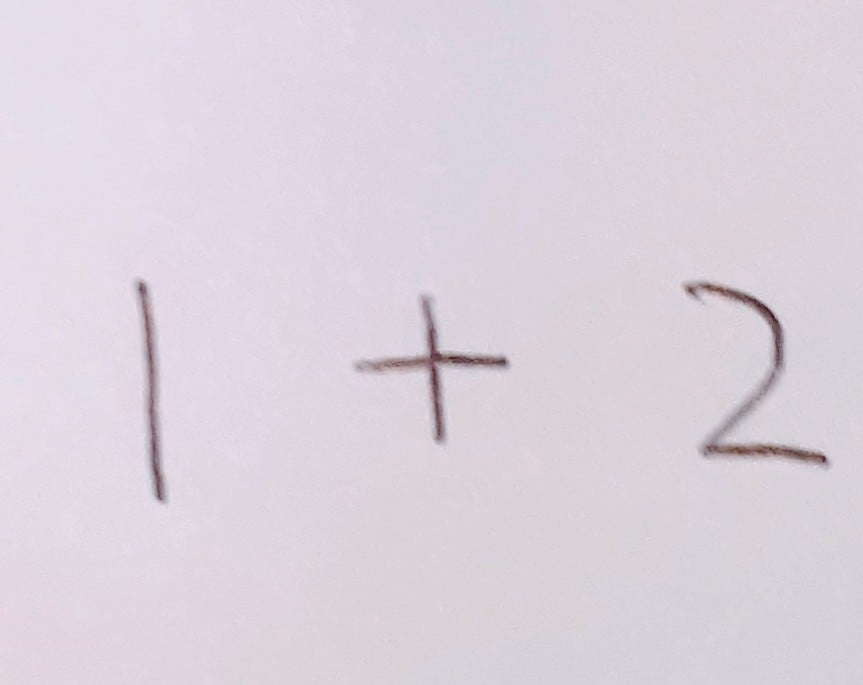 1 + 2